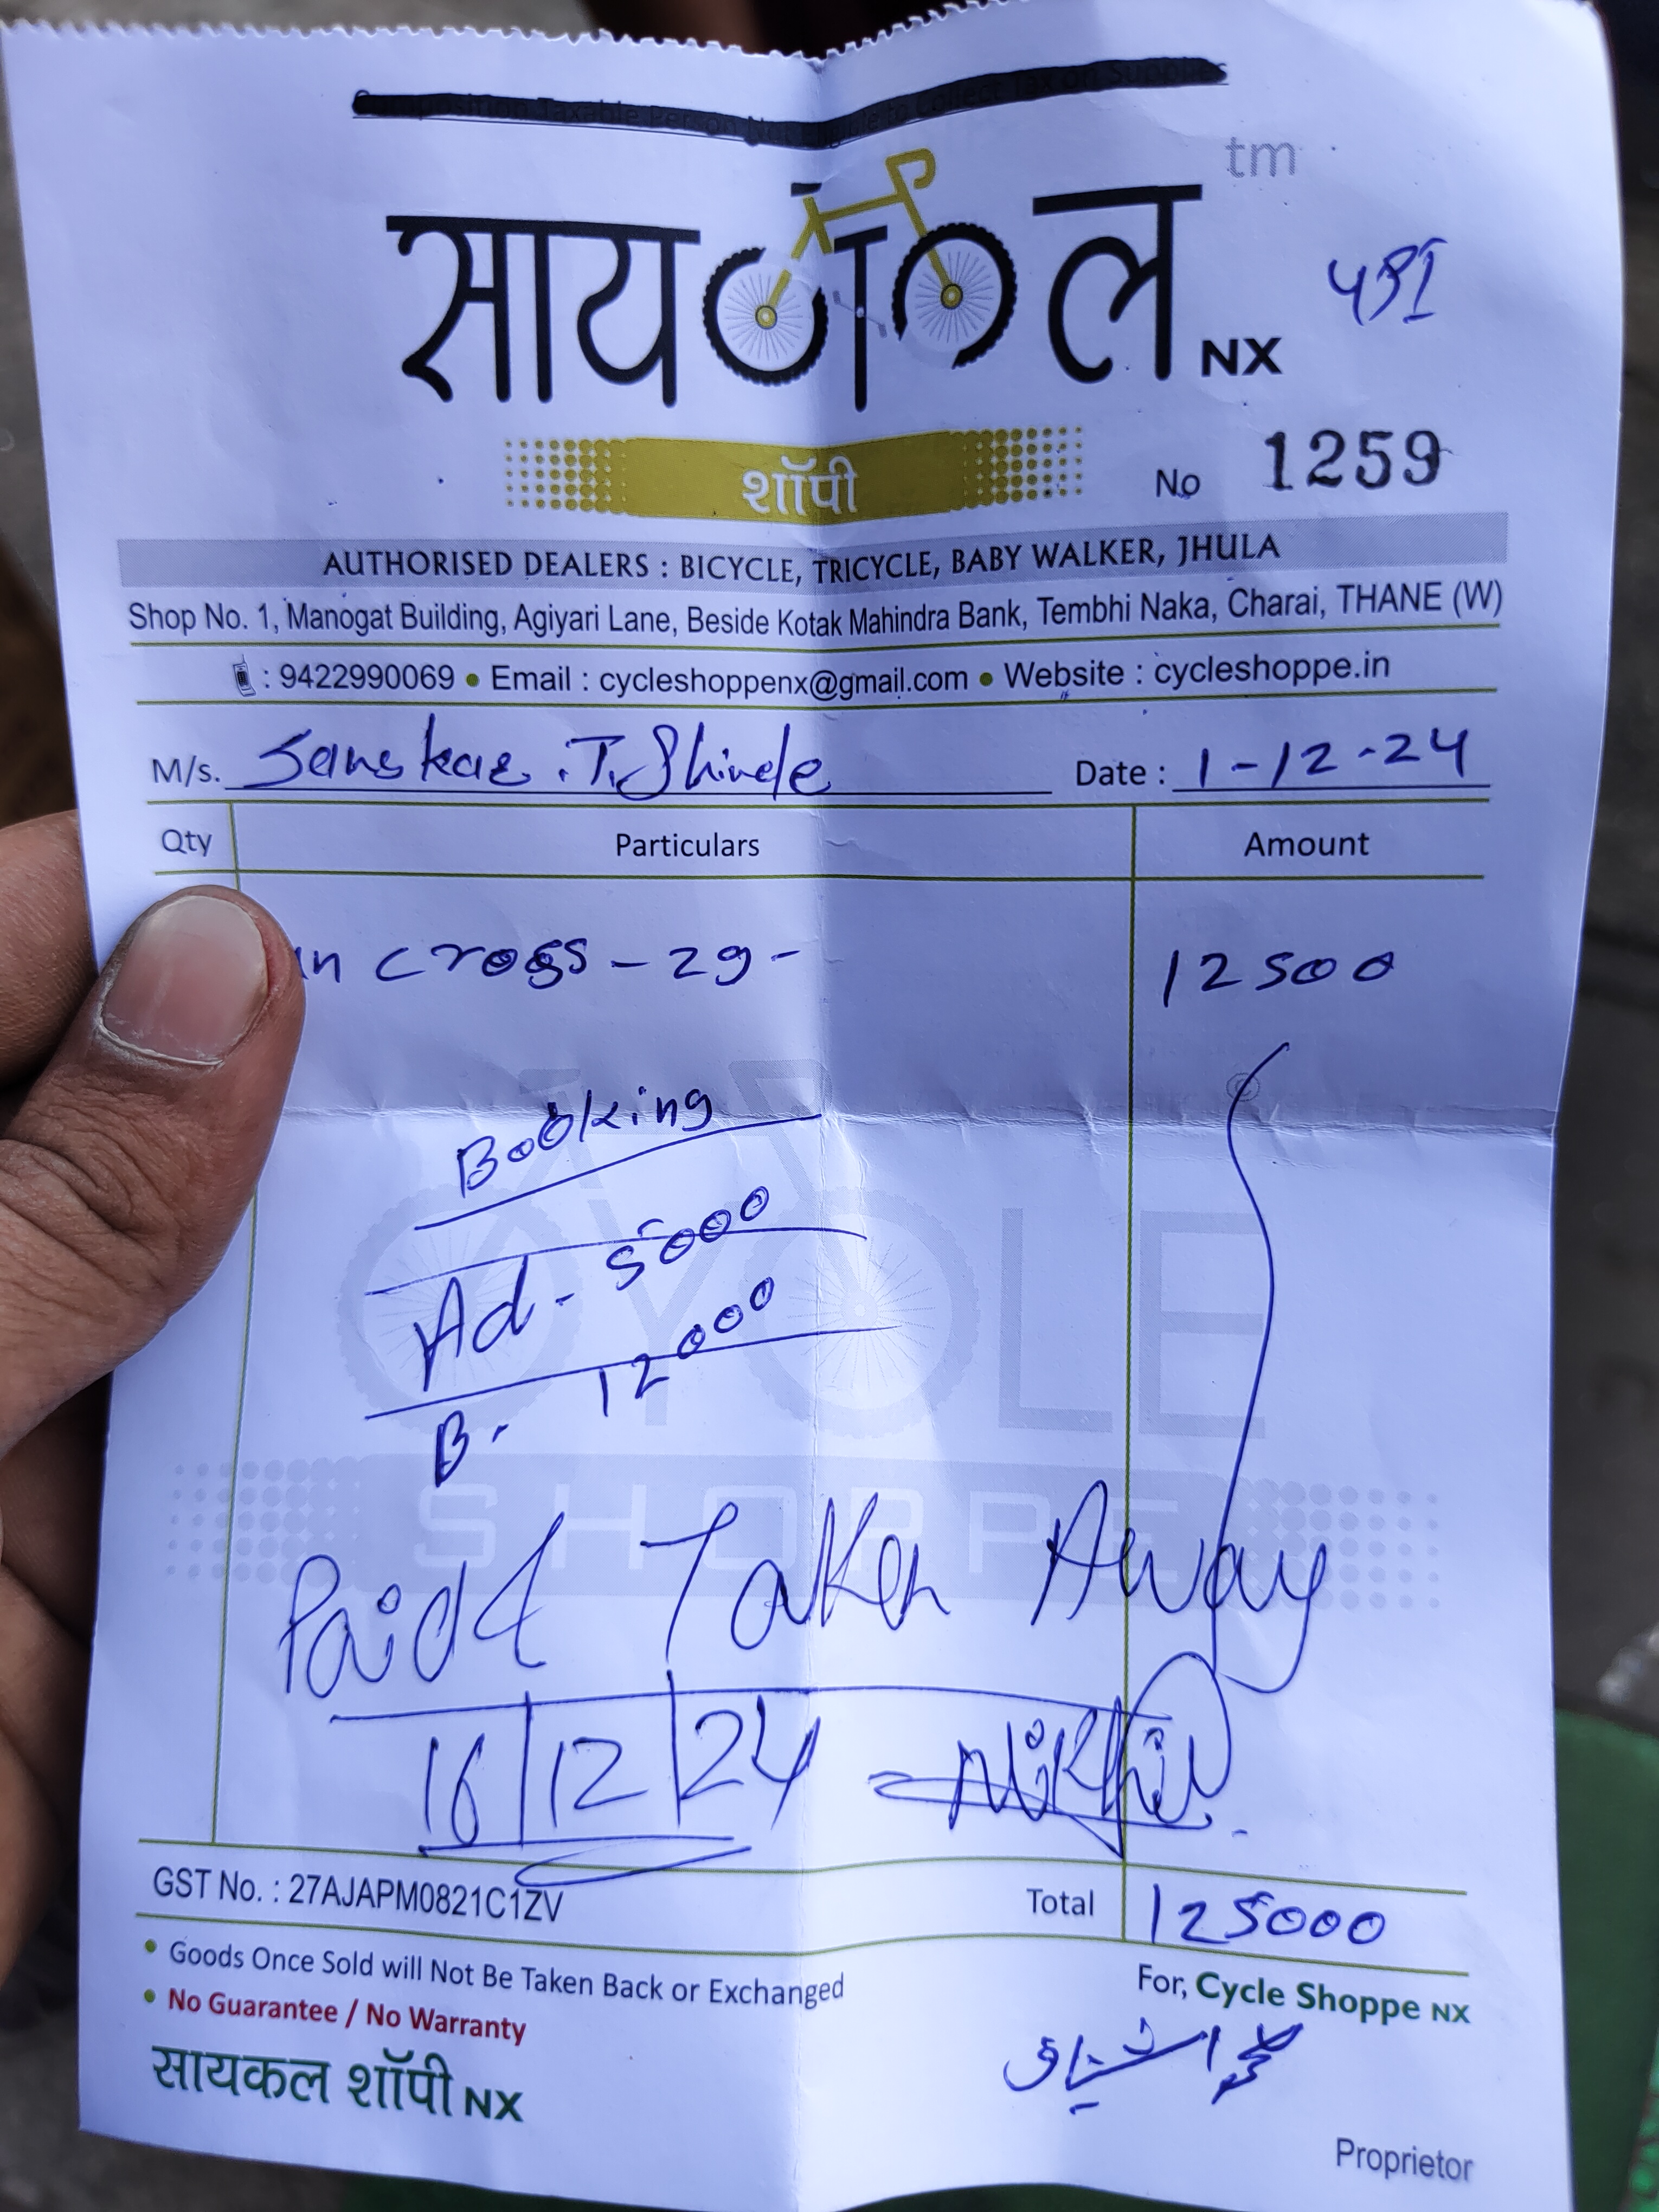 tm
सायकल NX
UPI
शॉपी
No 1259
AUTHORISED DEALERS : BICYCLE, TRICYCLE, BABY WALKER, JHULA
Shop No. 1, Manogat Building, Agiyari Lane, Beside Kotak Mahindra Bank, Tembhi Naka, Charai, THANE (W)
: 9422990069 • Email : cycleshoppenx@gmail.com • Website : cycleshoppe.in
M/s. Sanskar .T. Shinde Date : 1-12-24
Qty Particulars Amount
cross - 29 - 12500
Booking
Ad - 5000
B - 12000
CYCLE
SHOPPE
Paid & Taken Away
16 | 12 | 24 Nikhil
GST No. : 27AJAPM0821C1ZV Total 125000
• Goods Once Sold will Not Be Taken Back or Exchanged
• No Guarantee / No Warranty
For, Cycle Shoppe NX
सायकल शॉपी NX
Proprietor